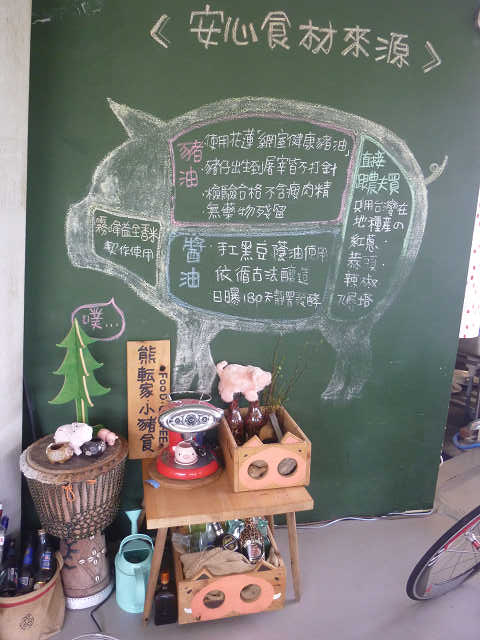 〈安心食材來源〉
豬油
使用花蓮「網室健康豬油」
豬仔出生到屠宰皆不打針
檢驗合格不含瘦肉精
無藥物殘留
直接跟農夫買
只用台灣在地種產の
紅蔥・
蒜頭・
辣椒
九層塔
霧峰益全香米
製作使用
醬油
・手工黑豆蔭油使用
依循古法釀造
日曝180天靜置發酵
噗...
熊転家小豬食